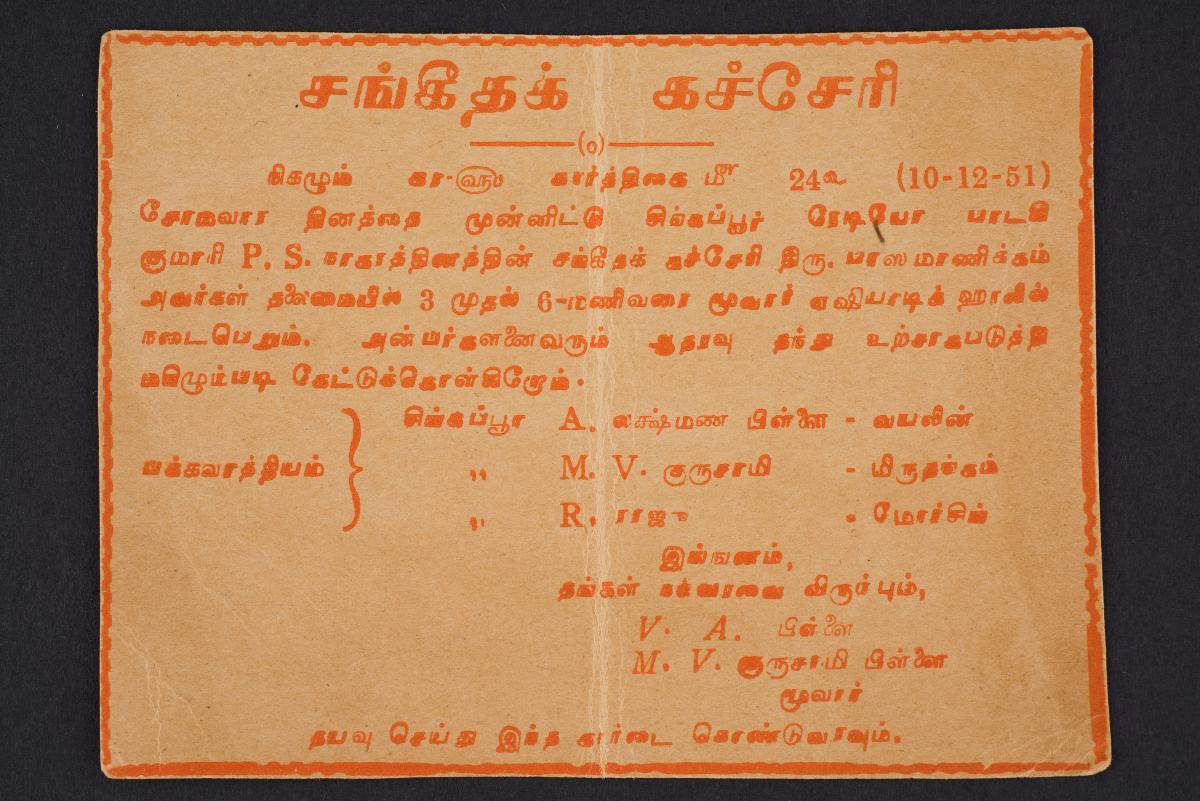 சங்கீதக் கச்சேரி
(o)
நிகழும் கர-௵ கார்த்திகை ௴ 24௳ (10-12-51)
சோமவார தினத்தை முன்னிட்டு சிங்கப்பூர் ரேடியோ பாடகி
குமாரி P. S. நாகரத்தினத்தின் சங்கீதக் கச்சேரி திரு. பாஸ்மாணிக்கம்
அவர்கள் தலைமையில் 3 முதல் 6-மணிவரை மூவார் ஏஷியாடிக் ஹாலில்
நடைபெறும். அன்பர்களனைவரும் ஆதரவு தந்து உற்சாகபடுத்தி
மகிழும்படி கேட்டுக்கொள்கிறோம்.
சிங்கப்பூர் A. லக்ஷ்மண பிள்ளை - வயலின்
பக்கவாத்தியம் } ,, M. V. குருசாமி - மிருதங்கம்
,, R. ராஜு - மோர்சிங்
இங்ஙணம்,
தங்கள் நல்வரவை விரும்பும்,
V. A. பிள்ளை
M. V. குருசாமி பிள்ளை
மூவார்
தயவு செய்து இந்த கார்டை கொண்டுவரவும்.